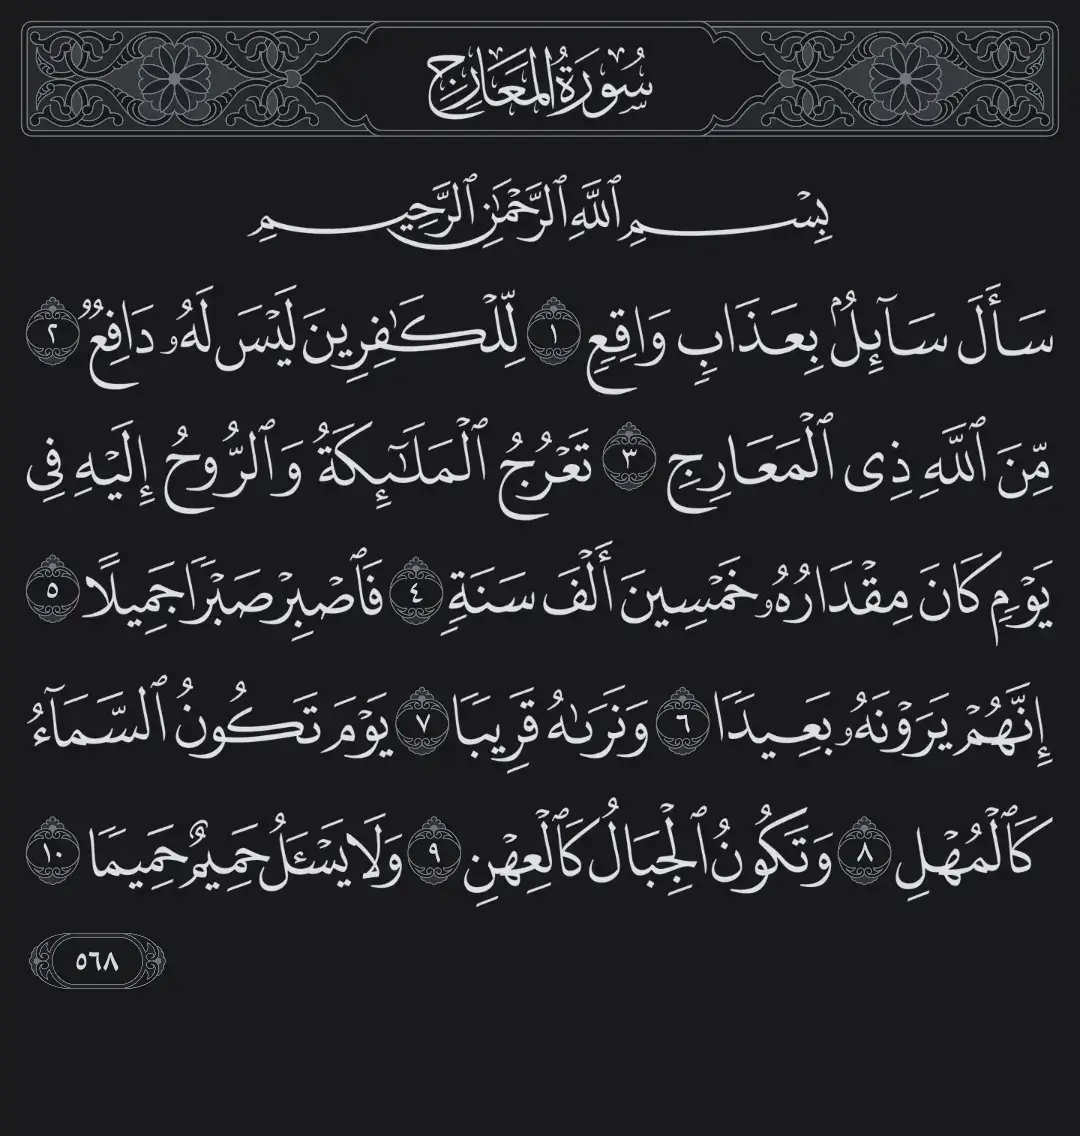 سُورَةُ المَعَارِجِ
بِسْمِ ٱللَّهِ ٱلرَّحْمَٰنِ ٱلرَّحِيمِ
سَأَلَ سَآئِلُۢ بِعَذَابٖ وَاقِعٖ ١ لِّلْكَٰفِرِينَ لَيْسَ لَهُۥ دَافِعٞ ٢
مِّنَ ٱللَّهِ ذِى ٱلْمَعَارِجِ ٣ تَعْرُجُ ٱلْمَلَٰٓئِكَةُ وَٱلرُّوحُ إِلَيْهِ فِى
يَوْمٖ كَانَ مِقْدَارُهُۥ خَمْسِينَ أَلْفَ سَنَةٖ ٤ فَٱصْبِرْ صَبْرٗا جَمِيلًا ٥
إِنَّهُمْ يَرَوْنَهُۥ بَعِيدٗا ٦ وَنَرَىٰهُ قَرِيبٗا ٧ يَوْمَ تَكُونُ ٱلسَّمَآءُ
كَٱلْمُهْلِ ٨ وَتَكُونُ ٱلْجِبَالُ كَٱلْعِهْنِ ٩ وَلَا يَسْـَٔلُ حَمِيمٌ حَمِيمٗا ١٠
٥٦٨